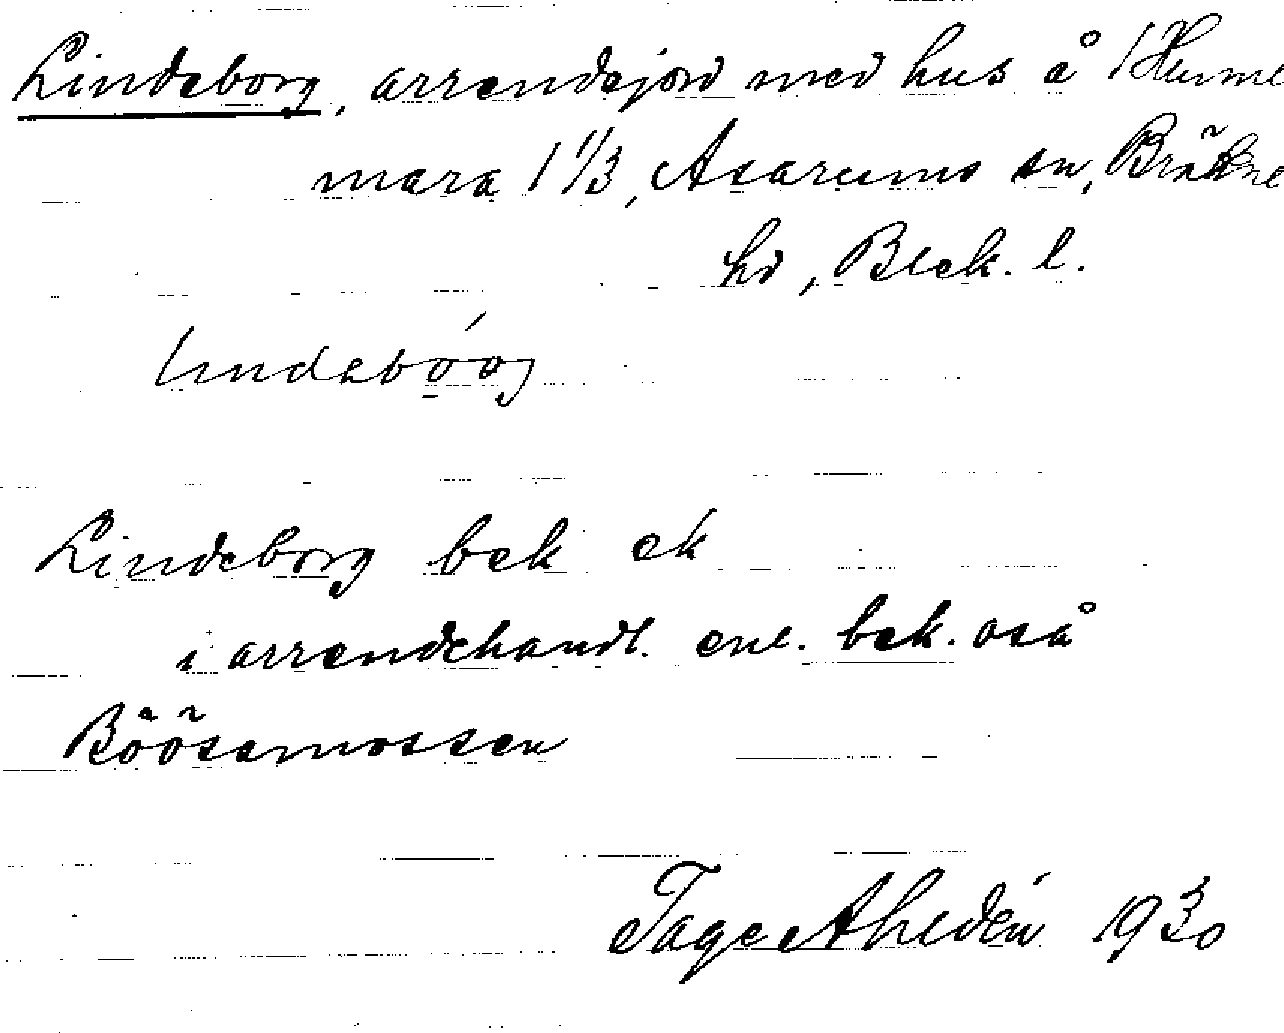 Lindeborg, arrendejord med hus å Hunne
mara 1 1/3, Asarums sn, Bräkne
hd, Blek. l.
Lindeborg bek ek
i arrendehandl. enl. bek. oså
Böösamossen
Tage Ahldén 1930